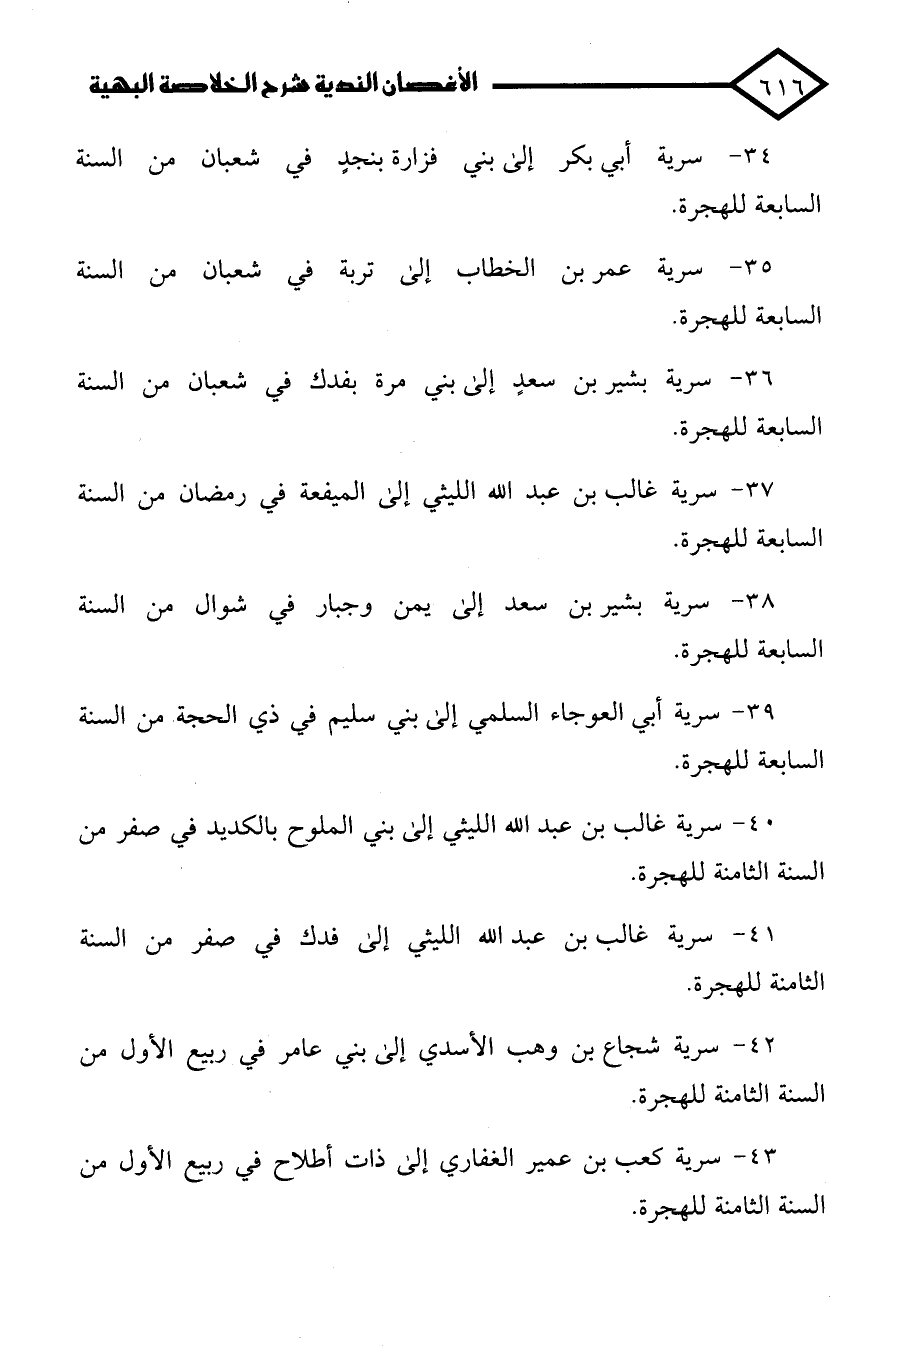 ٦١٦ الأغصان الندية شرح الخلاصة البهية
٣٤- سرية أبي بكر إلىٰ بني فزارة بنجدٍ في شعبان من السنة
السابعة للهجرة.
٣٥- سرية عمر بن الخطاب إلىٰ تربة في شعبان من السنة
السابعة للهجرة.
٣٦- سرية بشير بن سعدٍ إلىٰ بني مرة بفدك في شعبان من السنة
السابعة للهجرة.
٣٧- سرية غالب بن عبد الله الليثي إلىٰ الميفعة في رمضان من السنة
السابعة للهجرة.
٣٨- سرية بشير بن سعد إلىٰ يمن وجبار في شوال من السنة
السابعة للهجرة.
٣٩- سرية أبي العوجاء السلمي إلىٰ بني سليم في ذي الحجة من السنة
السابعة للهجرة.
٤٠- سرية غالب بن عبد الله الليثي إلىٰ بني الملوح بالكديد في صفر من
السنة الثامنة للهجرة.
٤١- سرية غالب بن عبد الله الليثي إلىٰ فدك في صفر من السنة
الثامنة للهجرة.
٤٢- سرية شجاع بن وهب الأسدي إلىٰ بني عامر في ربيع الأول من
السنة الثامنة للهجرة.
٤٣- سرية كعب بن عمير الغفاري إلىٰ ذات أطلاح في ربيع الأول من
السنة الثامنة للهجرة.